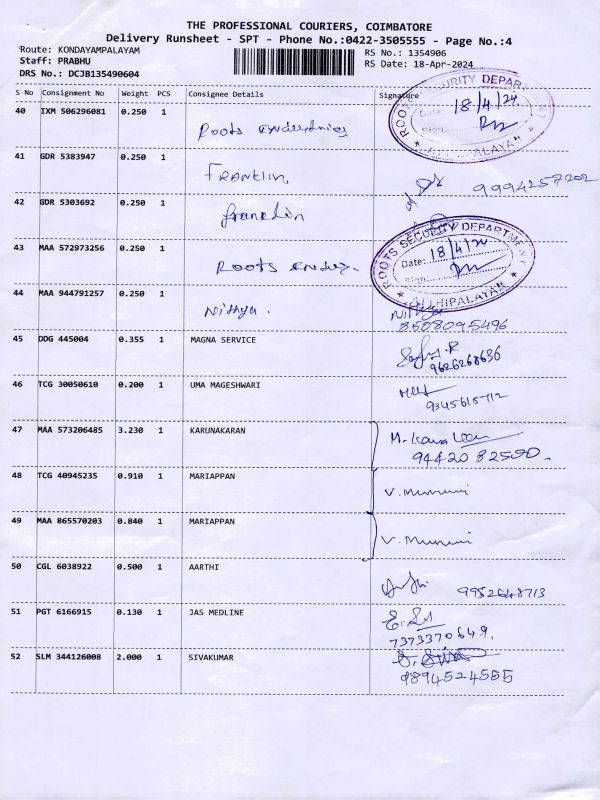 THE PROFESSIONAL COURIERS, COIMBATORE
Delivery Runsheet - SPT - Phone No.:0422-3505555 - Page No.:4
Route: KONDAYAMPALAYAM RS No.: 1354906
Staff: PRABHU RS Date: 18-Apr-2024
DRS No.: DCJB135490604
S No Consignment No Weight PCS Consignee Details Signature
40 IXM 506296081 0.250 1 Roots industries
ROOTS SECURITY DEPARTMENT
Date: 18/4/24
Sign
41 GDR 5383947 0.250 1 FRANKLIN
9994257202
42 GDR 5303692 0.250 1 franclin
43 MAA 572973256 0.250 1 Roots
ROOTS SECURITY DEPARTMENT
Date: 18/4/24
Sign
44 MAA 944791257 0.250 1 Nithya. Nithya
8508095496
45 DDG 445004 0.355 1 MAGNA SERVICE
9626268636
46 TCG 30050610 0.200 1 UMA MAGESHWARI
9345615712
47 MAA 573206485 3.230 1 KARUNAKARAN
9442082550.
48 TCG 40945235 0.910 1 MARIAPPAN
49 MAA 865570203 0.840 1 MARIAPPAN
50 CGL 6038922 0.500 1 AARTHI
9952648713
51 PGT 6166915 0.130 1 JAS MEDLINE
7373370649.
52 SLM 344126008 2.000 1 SIVAKUMAR
9894524555